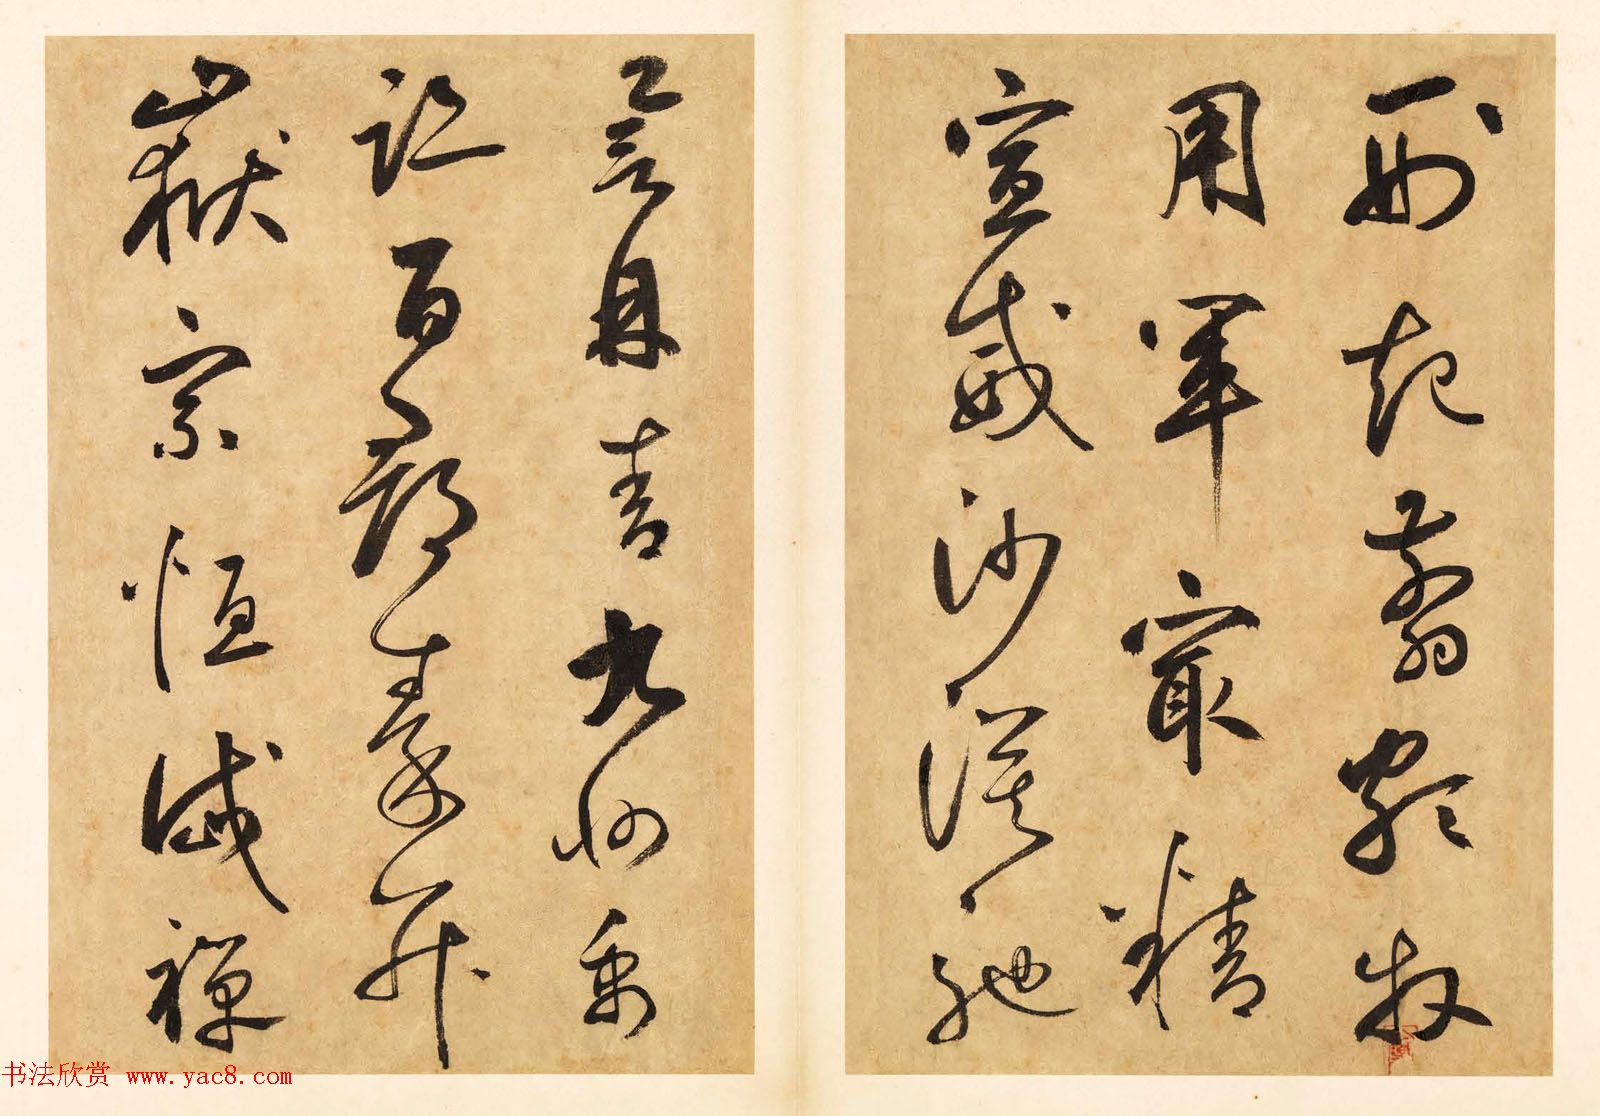 刑起翦頗牧
用軍冣精
宣威沙漠馳
譽丹青九州禹
跡百郡秦并
嶽宗恒岱禪
书法欣赏 www.yac8.com